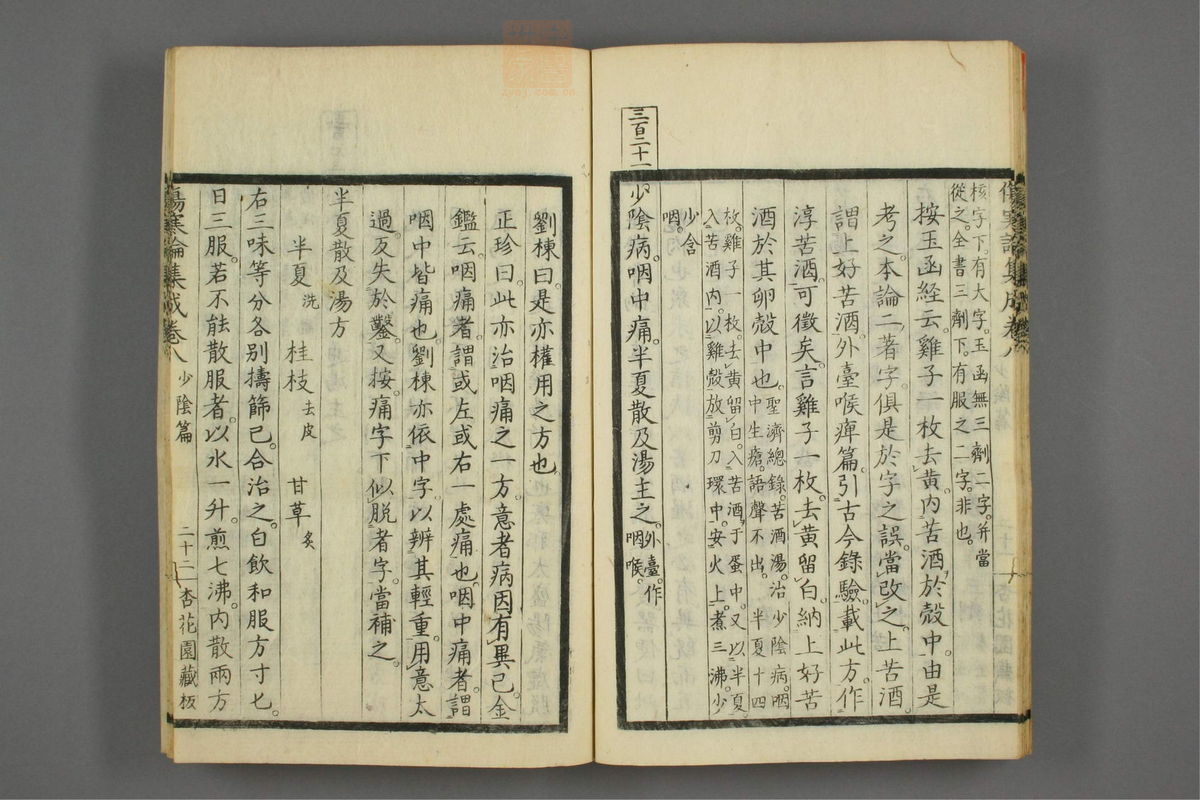 核字下。有大字。玉函無三劑二字。并當
從之。全書三劑下。有服之二字。非也。
按玉函經云。雞子一枚去黃。內苦酒。於殼中。由是
考之。本論二著字。俱是於字之誤。當改之。上苦酒
謂上好苦酒。外臺喉痺篇。引古今錄驗。載此方。作
淳苦酒。可徵矣。言雞子一枚。去黃留白。納上好苦
酒於其卵殼中也。聖濟總錄。苦酒湯。治少陰病。咽
中生瘡。語聲不出。半夏十四
枚。雞子一枚。去黃留白。入苦酒于蛋中。又以半夏。
入苦酒內。以雞殼放剪刀環中。安火上。煮三沸。少
少含
咽。
三百二十一
少陰病。咽中痛。半夏散及湯主之。外臺。作
咽喉。
劉棟曰。是亦權用之方也
正珍曰。此亦治咽痛之一方。意者病因有異已。金
鑑云。咽痛者。謂或左或右一處痛也。咽中痛者。謂
咽中皆痛也。劉棟亦依中字。以辨其輕重。用意太
過。及失於鑿。又按。痛字下似脫者字。當補之。
半夏散及湯方
半夏洗 桂枝去皮 甘草炙
右三味等分各别擣篩已。合治之。白飲和服方寸匕。
日三服。若不能散服者。以水一升。煎七沸。內散兩方
傷寒論集成卷八 少陰篇 二十二 杏花園藏板